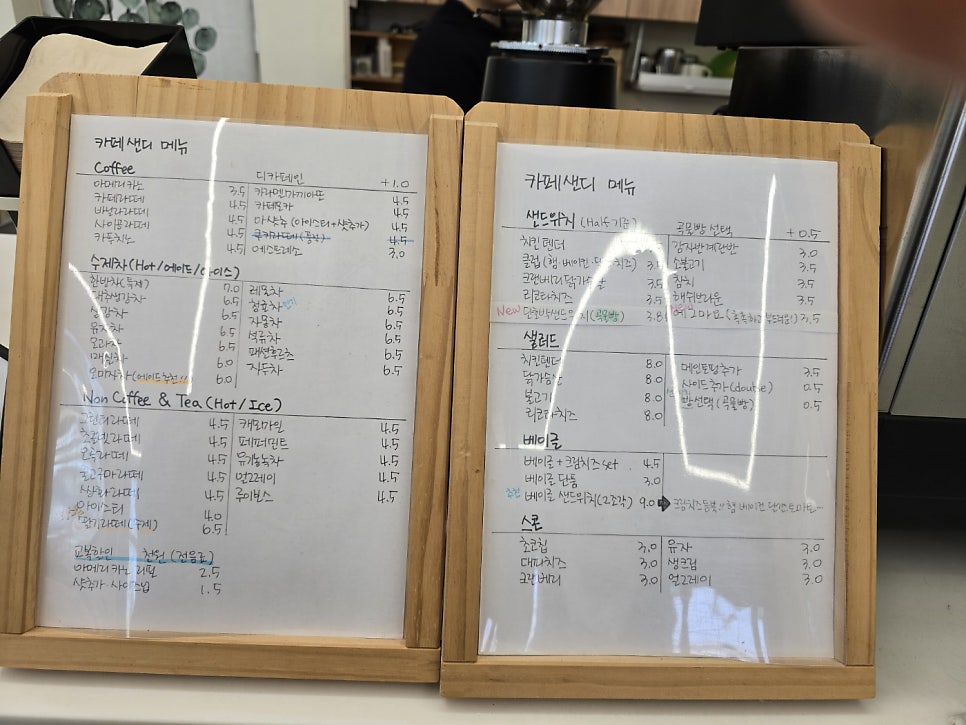 카페샌디 메뉴
Coffee 디카페인 +1.0
아메리카노 3.5 카라멜마끼아또 4.5
카페라떼 4.5 카페모카 4.5
바닐라라떼 4.5 아샷추 (아이스티+샷추가) 4.5
사이공라떼 4.5 4.5
카푸치노 4.5 에스프레소 3.0
수제차(Hot/에이드/아이스)
한방차(특제) 7.0 레몬차 6.5
대추생강차 6.5 청귤차 인기 6.5
생강차 6.5 자몽차 6.5
유자차 6.5 석류차 6.5
모과차 6.5 패션후르츠 6.5
매실차 6.0 자두차 6.5
오미자차(에이드추천!!) 6.0
Non Coffee & Tea (Hot/Ice)
그린티라떼 4.5 캐모마일 4.5
초콜렛라떼 4.5 페퍼민트 4.5
오곡라떼 4.5 유기농녹차 4.5
고구마라떼 4.5 얼그레이 4.5
4.5 루이보스 4.5
아이스티 4.0
딸기라떼(수제) 6.5
교복할인 천원 (전음료)
아메리카노 리필 2.5
샷추가·사이즈업 1.5
카페샌디 메뉴
샌드위치 (Half기준) 곡물빵 선택 +0.5
치킨텐더 감자반계란반 3.0
클럽 (햄·베이컨· 치즈) 소불고기 3.5
크랜베리닭가슴살 3.5 참치 3.5
리코타치즈 3.5 해쉬브라운 3.5
New 단호박샌드위치(곡물빵) 3.8 에그마요 (촉촉하고부드러운!) 3.5
샐러드
치킨텐더 8.0 메인토핑추가 3.5
닭가슴살 8.0 사이드추가(double) 0.5
불고기 8.0 빵선택(곡물빵) 0.5
리코타치즈 8.0
베이글
베이글+크림치즈 set 4.5
베이글 단품 3.0
추천 베이글 샌드위치(2조각) 9.0 ➡ 크림치즈듬뿍!! 햄 베이컨 계란토마토...
스콘
초코칩 3.0 유자 3.0
대파치즈 3.0 생크림 3.0
크랜베리 3.0 얼그레이 3.0